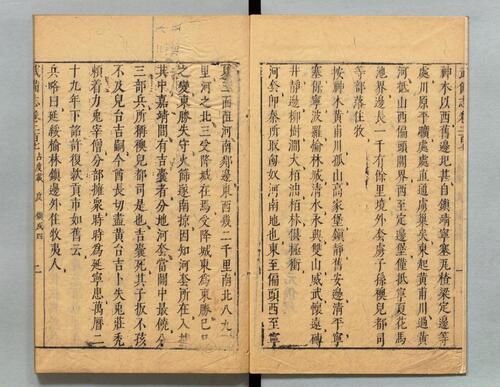 神木以西舊邊圮甚自鎮靖寧塞瓦楂梁定邊等
處川原平曠處處直通虜巢矣東起黃甫川過黃
河抵山西偏頭關界西至定邊堡僅抵寧夏花馬
池界邊長一千有餘里境外套虜子孫襖兒都司
等部落住牧
按神木黃甫川孤山高家堡鎮靜舊安邊清平寧
塞保寧波羅榆林威清水永興雙山威武懷遠磚
井靜邊柳樹澗大栢油栢林俱極衝
河套即秦所取匈奴河南地也東至偏頭西至寧
夏三面阻河南鄰邊東西幾二千里南北八九
里河之北三受降城在焉受降城東為東勝已
之變東勝失守火篩遂南掠因知河套所在入
其中嘉靖間有吉囊者分地河套當關中最饒分
三部兵所稱襖兒都司是也吉囊死其子扳不孩
不及兒台吉嗣今酋長切盡黃台吉卜失兎莊禿
賴着力兎宰僧分部擁衆時時為延寧患萬曆二
十九年下詔許復款貢市如舊云
兵略曰延綏榆林鎮邊外住牧夷人
武備志卷二百七 占度載 度 鎮戍四 二